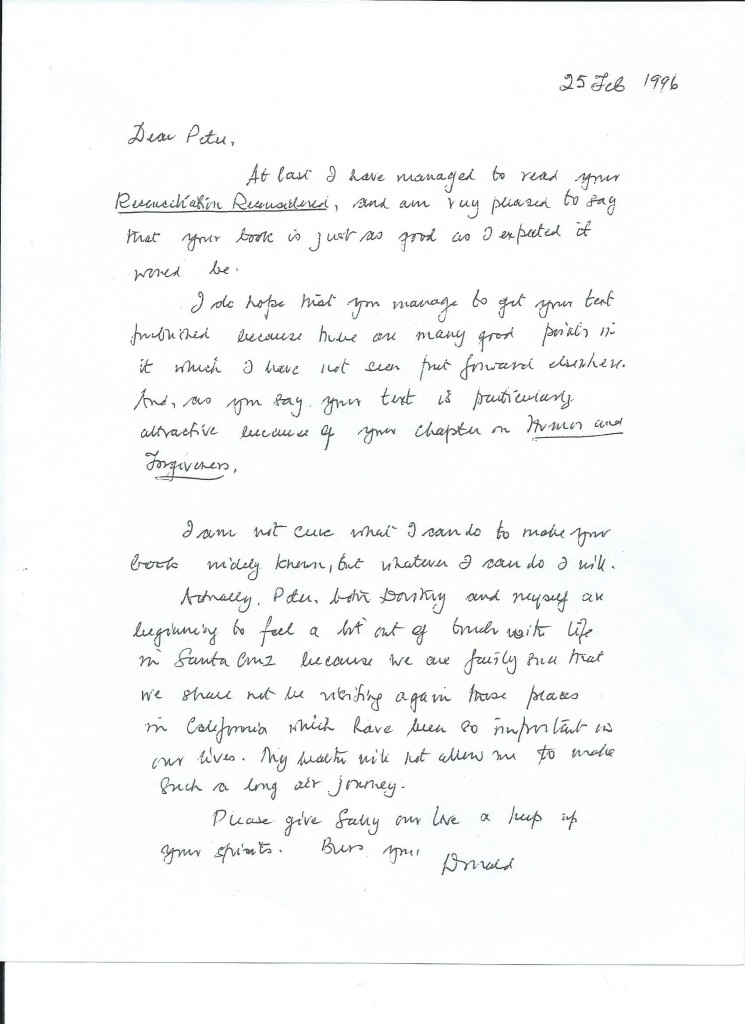 25 Feb 1996
Dear Peter,
At last I have managed to read your
Reconciliation Reconsidered, and am very pleased to say
that your book is just as good as I expected it
would be.
I do hope that you manage to get your text
published because there are many good points in
it which I have not seen put forward elsewhere.
And, as you say, your text is particularly
attractive because of your chapter on Humor and
Forgiveness.
I am not sure what I can do to make your
book widely known, but whatever I can do I will.
Actually, Peter, both Dorothy and myself are
beginning to feel a bit out of touch with life
in Santa Cruz because we are fairly sure that
we shall not be visiting again those places
in California which have been so important in
our lives. My health will not allow me to make
such a long air journey.
Please give Sally our love & keep up
your spirits. Bless you
Donald